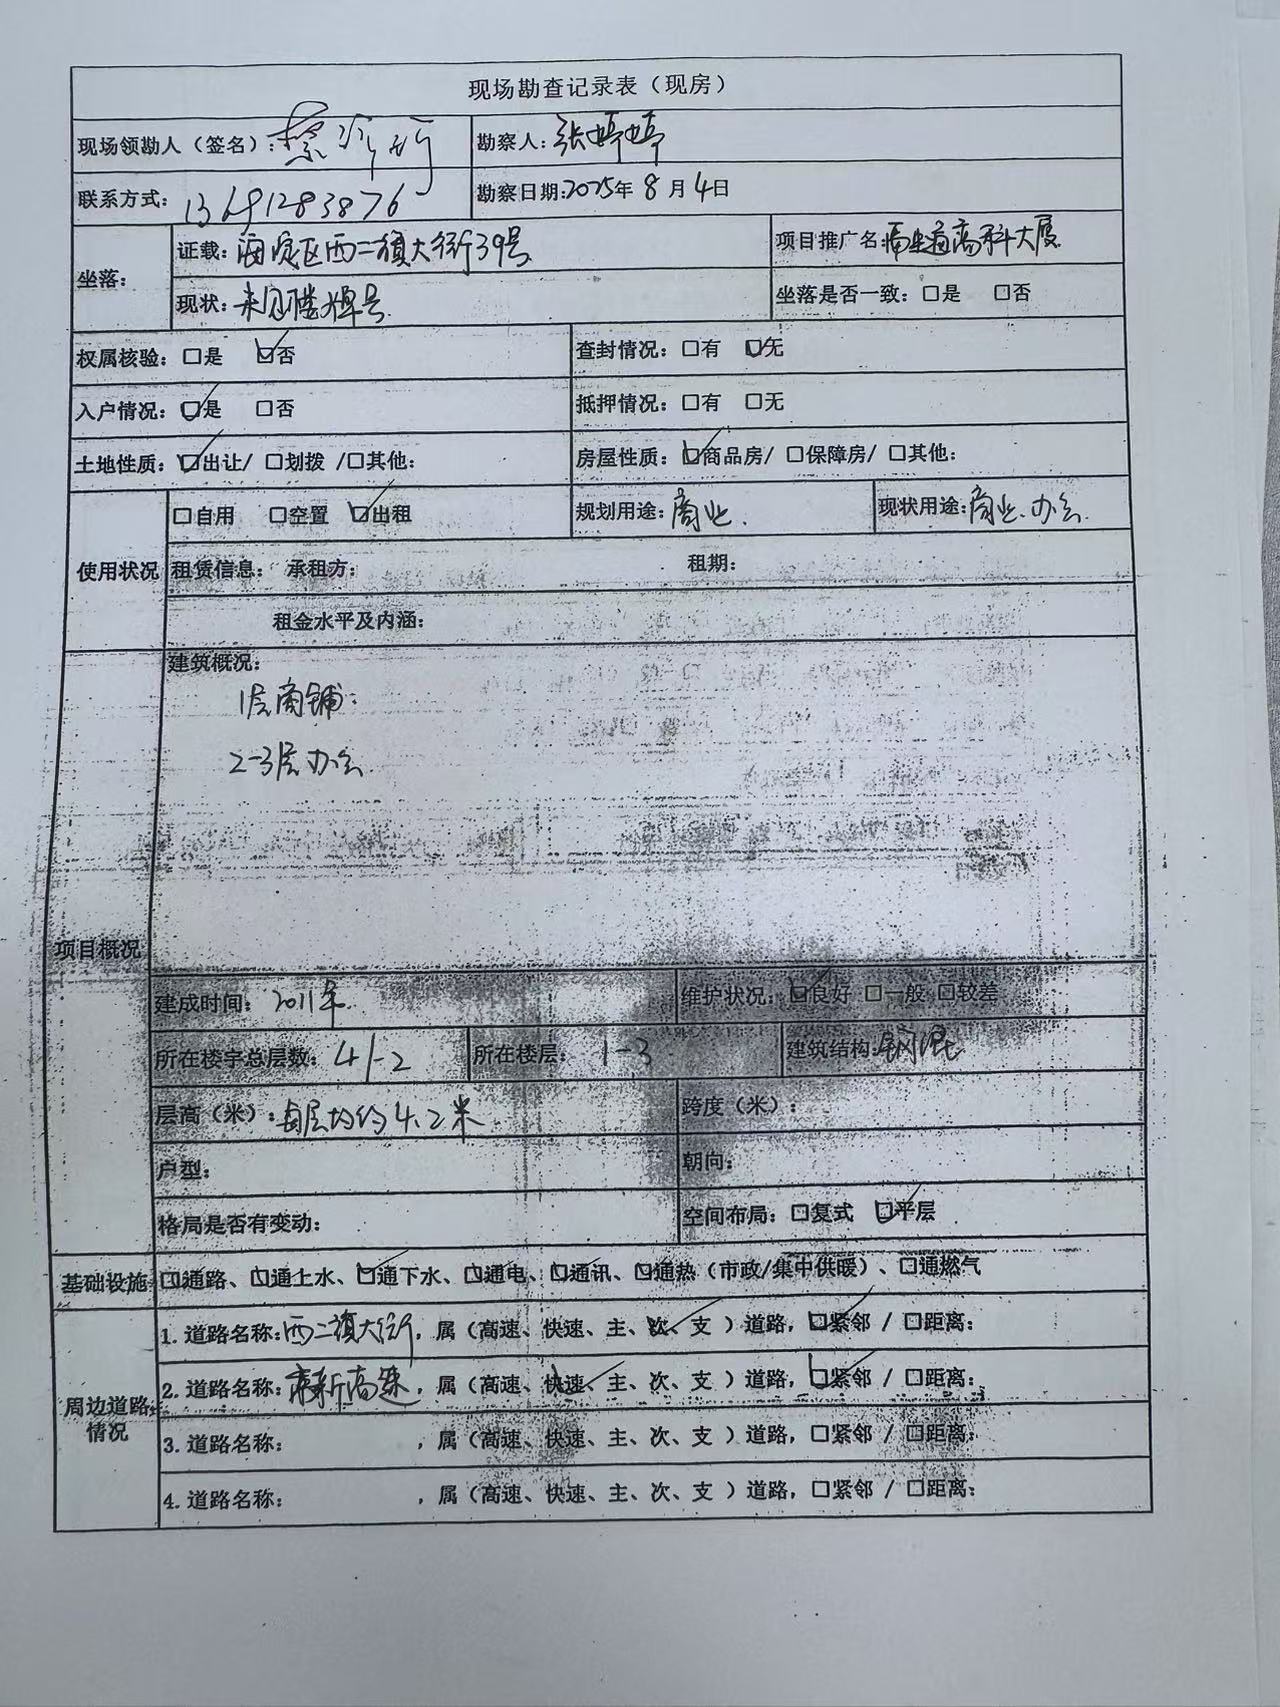 现场勘查记录表（现房）
现场领勘人（签名）：
勘察人：张婷婷
联系方式：13691283876
勘察日期：2025年8月4日
坐落：
证载：海淀区西二旗大街39号
项目推广名：
高科大厦
现状：未见楼牌号
坐落是否一致：□是 □否
权属核验：□是 ☑否
查封情况：□有 ☑无
入户情况：☑是 □否
抵押情况：□有 □无
土地性质：☑出让/ □划拨 /□其他：
房屋性质：☑商品房/ □保障房/ □其他：
使用状况
□自用 □空置 ☑出租
规划用途：商业.
现状用途：商业、办公.
租赁信息： 承租方：
租期：
租金水平及内涵：
项目概况
建筑概况：
1层商铺.
2-3层办公.
建成时间：2011年.
维护状况：☑良好 □一般 □较差
所在楼宇总层数：4/-2
所在楼层：1-3
建筑结构：钢混
层高（米）：每层均约4.2米
跨度（米）：
户型：
朝向：
格局是否有变动：
空间布局：□复式 ☑平层
基础设施
☑通路、☑通上水、☑通下水、☑通电、☑通讯、☑通热（市政/集中供暖）、□通燃气
周边道路情况
1. 道路名称：西二旗大街，属（高速、快速、主、次、支 ）道路，☑紧邻 / □距离：
2. 道路名称：京新高速，属（高速、快速、主、次、支 ）道路，☑紧邻 / □距离：
3. 道路名称： ，属（高速、快速、主、次、支 ）道路，□紧邻 / □距离：
4. 道路名称： ，属（高速、快速、主、次、支 ）道路，□紧邻 / □距离：